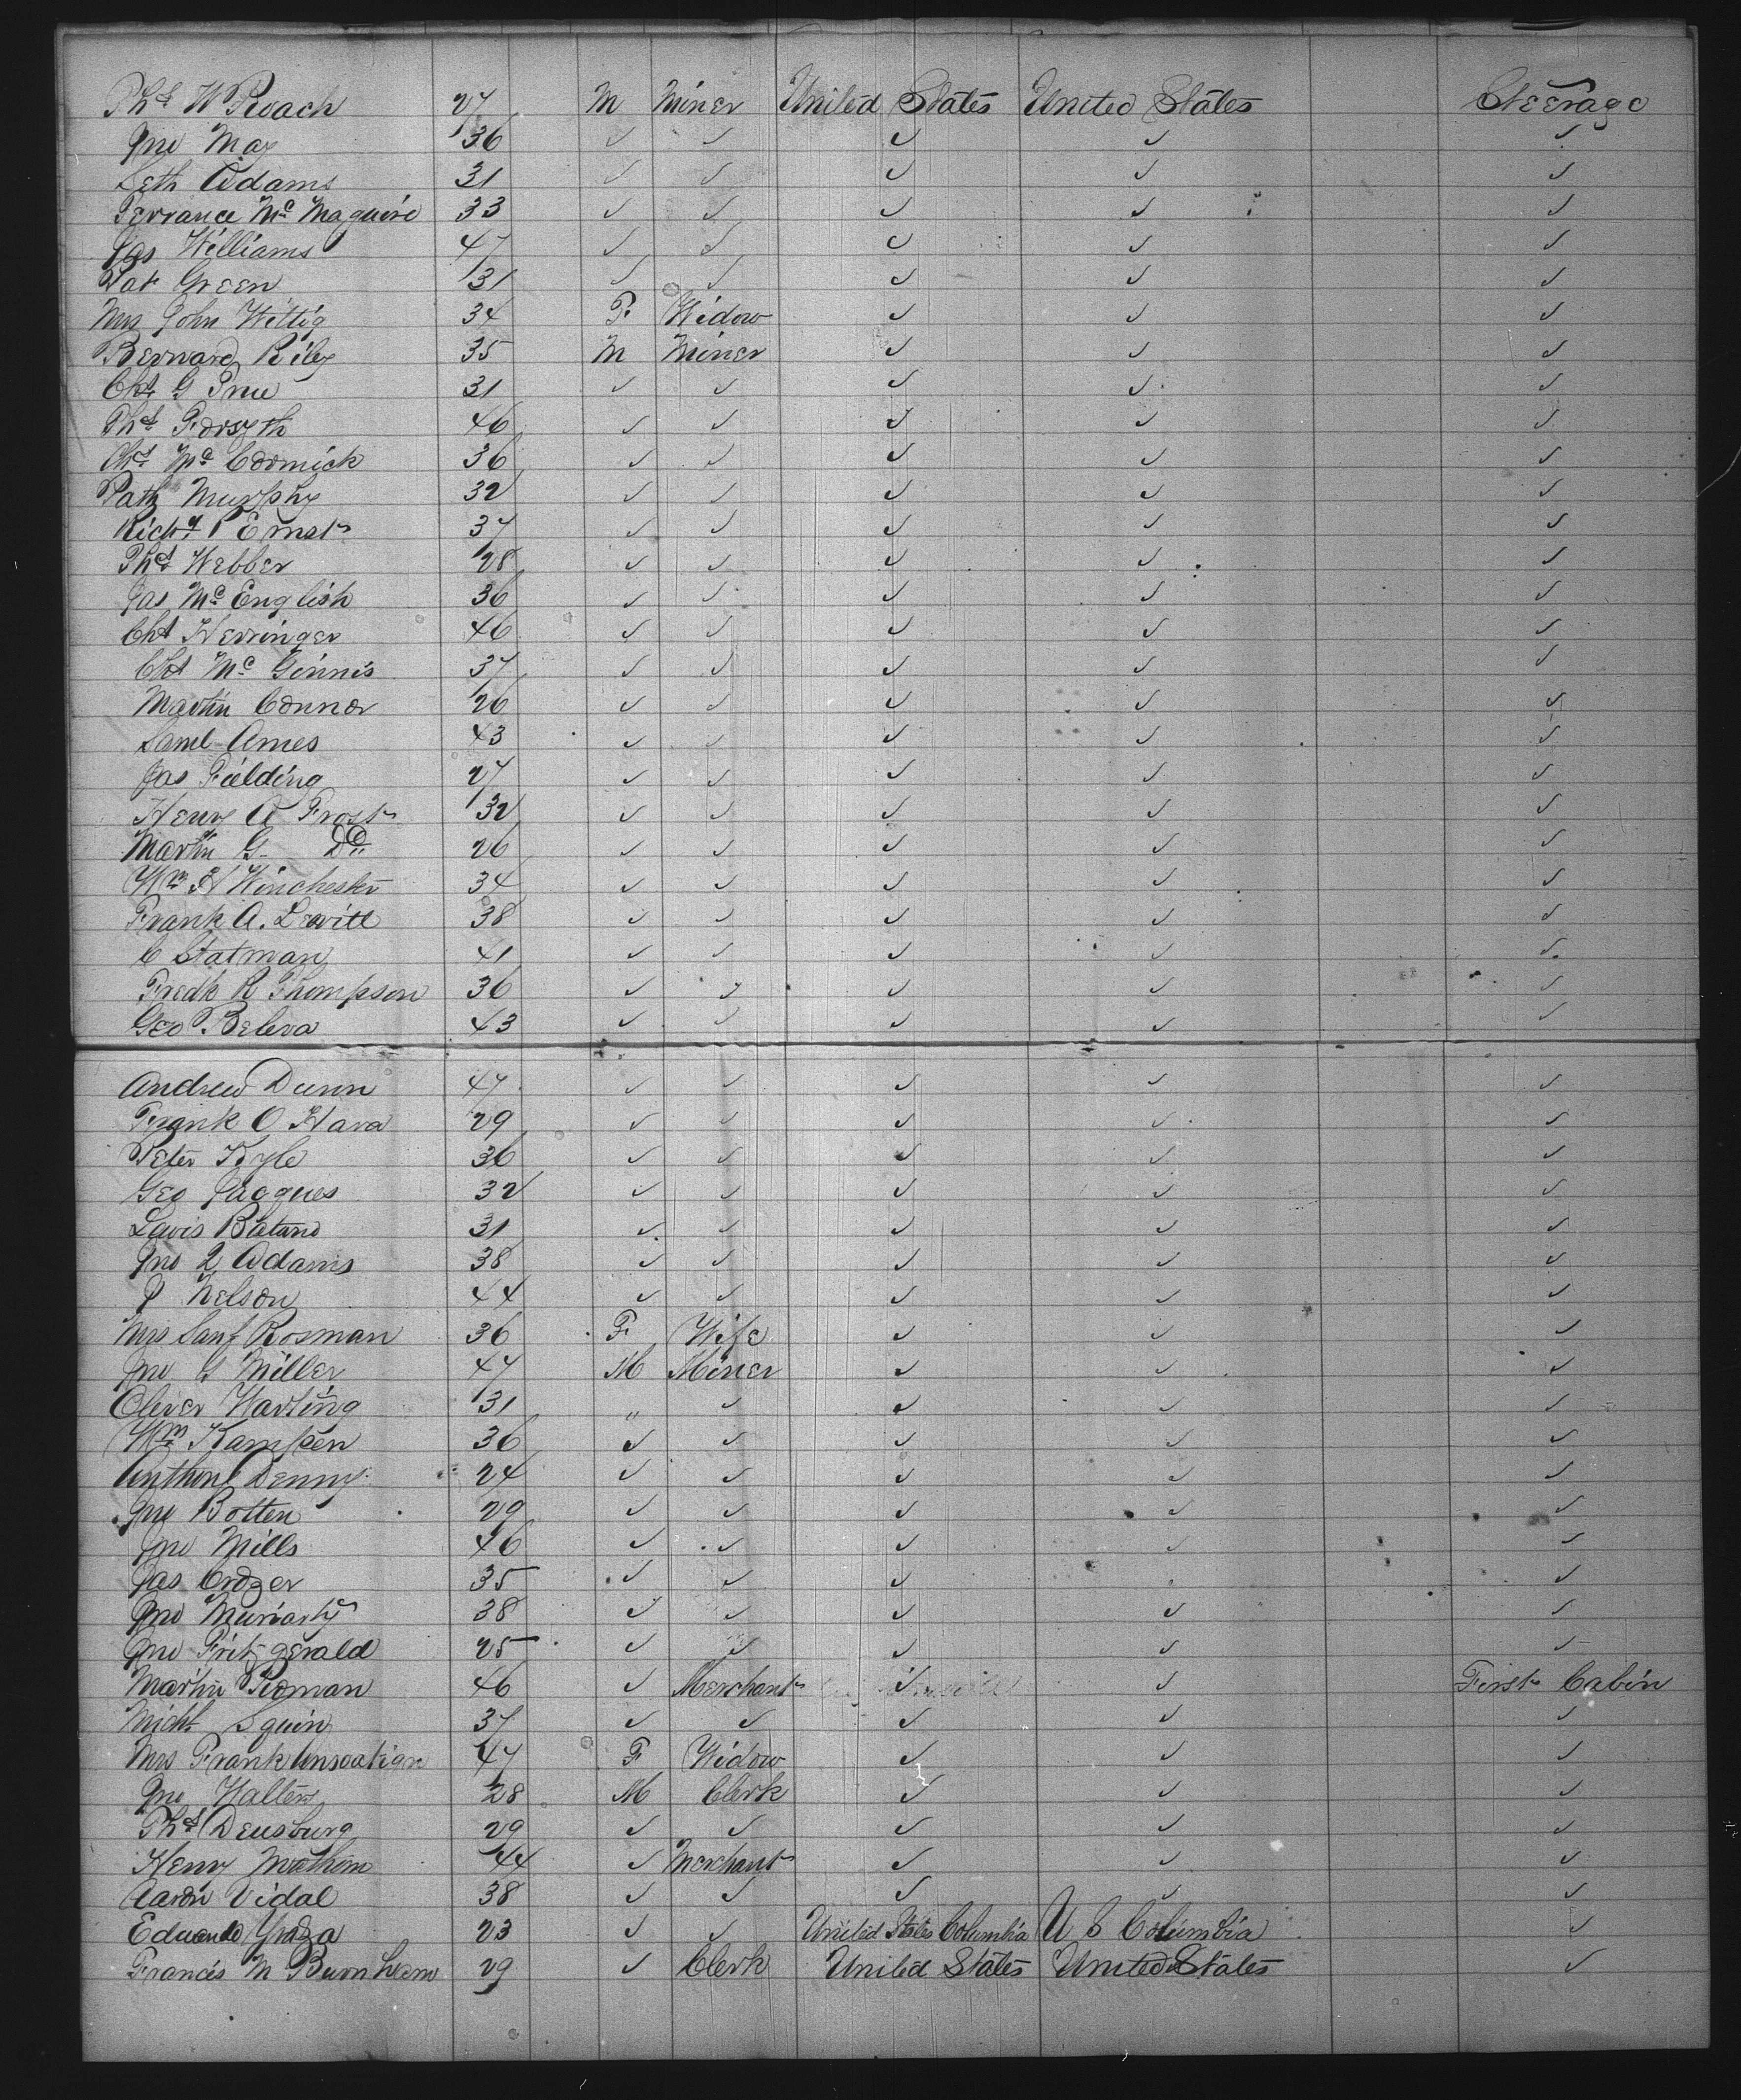 Ths W Roach 27 M Miner United States United States Steerage
Jno May 36 ✓ ✓ ✓ ✓ ✓
Seth Adams 31 ✓ ✓ ✓ ✓ ✓
Terrance Mc Maguire 33 ✓ ✓ ✓ ✓ ✓
Jas Williams 47 ✓ ✓ ✓ ✓ ✓
Pat Green 31 ✓ ✓ ✓ ✓ ✓
Mrs John Wittig 34 F Widow ✓ ✓ ✓
Bernard Riley 35 M Miner ✓ ✓ ✓
Chs G 31 ✓ ✓ ✓ ✓ ✓
Ths Forsyth 46 ✓ ✓ ✓ ✓ ✓
Chs Mc Cormick 36 ✓ ✓ ✓ ✓ ✓
Patk Murphy 32 ✓ ✓ ✓ ✓ ✓
Richd P Ernst 37 ✓ ✓ ✓ ✓ ✓
Ths Webber 28 ✓ ✓ ✓ ✓ ✓
Jas Mc English 36 ✓ ✓ ✓ ✓ ✓
Chs Herringer 46 ✓ ✓ ✓ ✓ ✓
Chs Mc Ginnis 37 ✓ ✓ ✓ ✓ ✓
Martin Connor 26 ✓ ✓ ✓ ✓ ✓
Saml Ames 43 ✓ ✓ ✓ ✓ ✓
Jas Fielding 27 ✓ ✓ ✓ ✓ ✓
Henry A Frost 32 ✓ ✓ ✓ ✓ ✓
Martin G Do 26 ✓ ✓ ✓ ✓ ✓
Wm H Winchester 34 ✓ ✓ ✓ ✓ ✓
Frank A. Levitt 38 ✓ ✓ ✓ ✓ ✓
C Statman 41 ✓ ✓ ✓ ✓ ✓
Fredk R Thompson 36 ✓ ✓ ✓ ✓ ✓
Geo Beleva 43 ✓ ✓ ✓ ✓ ✓
Andrew Dunn 47 ✓ ✓ ✓ ✓ ✓
Frank O Hara 29 ✓ ✓ ✓ ✓ ✓
Peter Kyle 36 ✓ ✓ ✓ ✓ ✓
Geo Jacques 32 ✓ ✓ ✓ ✓ ✓
Louis 31 ✓ ✓ ✓ ✓ ✓
Jno Q Adams 38 ✓ ✓ ✓ ✓ ✓
P Nelson 44 ✓ ✓ ✓ ✓ ✓
Mrs Sanf Rosman 36 F Wife ✓ ✓ ✓
Jno G Miller 47 M Miner ✓ ✓ ✓
Oliver Harting 31 " ✓ ✓ ✓ ✓
Wm Kampen 36 ✓ ✓ ✓ ✓ ✓
Anthony Denny 24 ✓ ✓ ✓ ✓ ✓
Jno Botten 29 ✓ ✓ ✓ ✓ ✓
Jno Mills 46 ✓ ✓ ✓ ✓ ✓
Jas Crozer 35 ✓ ✓ ✓ ✓
Jno Muriarty 38 ✓ ✓ ✓ ✓ ✓
Jno Fritzgerald 25 ✓ ✓ ✓ ✓ ✓
Martin Roman 46 ✓ Merchant ✓ ✓ First Cabin
Michl Squin 37 ✓ ✓ ✓ ✓ ✓
Mrs Frank 47 F Widow ✓ ✓ ✓
Jno Walters 28 M Clerk ✓ ✓ ✓
Ths Deusburg 29 ✓ ✓ ✓ ✓ ✓
Henry 44 ✓ Merchant ✓ ✓ ✓
Aaron Vidal 38 ✓ ✓ ✓ ✓ ✓
Eduardo 23 ✓ ✓ United States Columbia U S Columbia ✓
Francis M Burnham 29 ✓ Clerk United States United States ✓